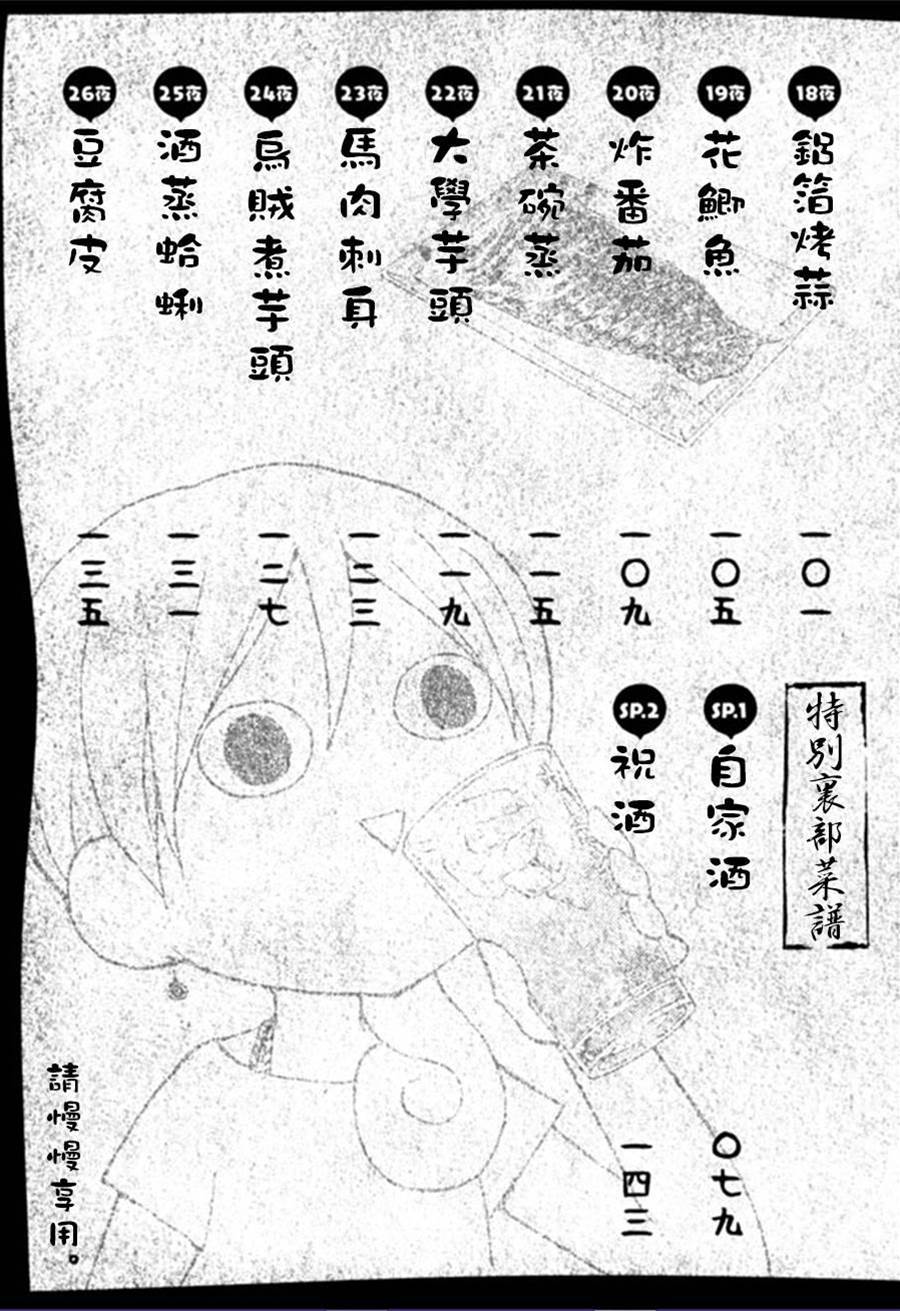 18夜 鋁箔烤蒜 一〇一
19夜 花鯽魚 一〇五
20夜 炸番茄 一〇九
21夜 茶碗蒸 一一五
22夜 大學芋頭 一一九
23夜 馬肉刺身 一二三
24夜 烏賊煮芋頭 一二七
25夜 酒蒸蛤蜊 一三一
26夜 豆腐皮 一三五
特別裏部菜譜
SP.1 自家酒 〇七九
SP.2 祝酒 一四三
請慢慢享用。